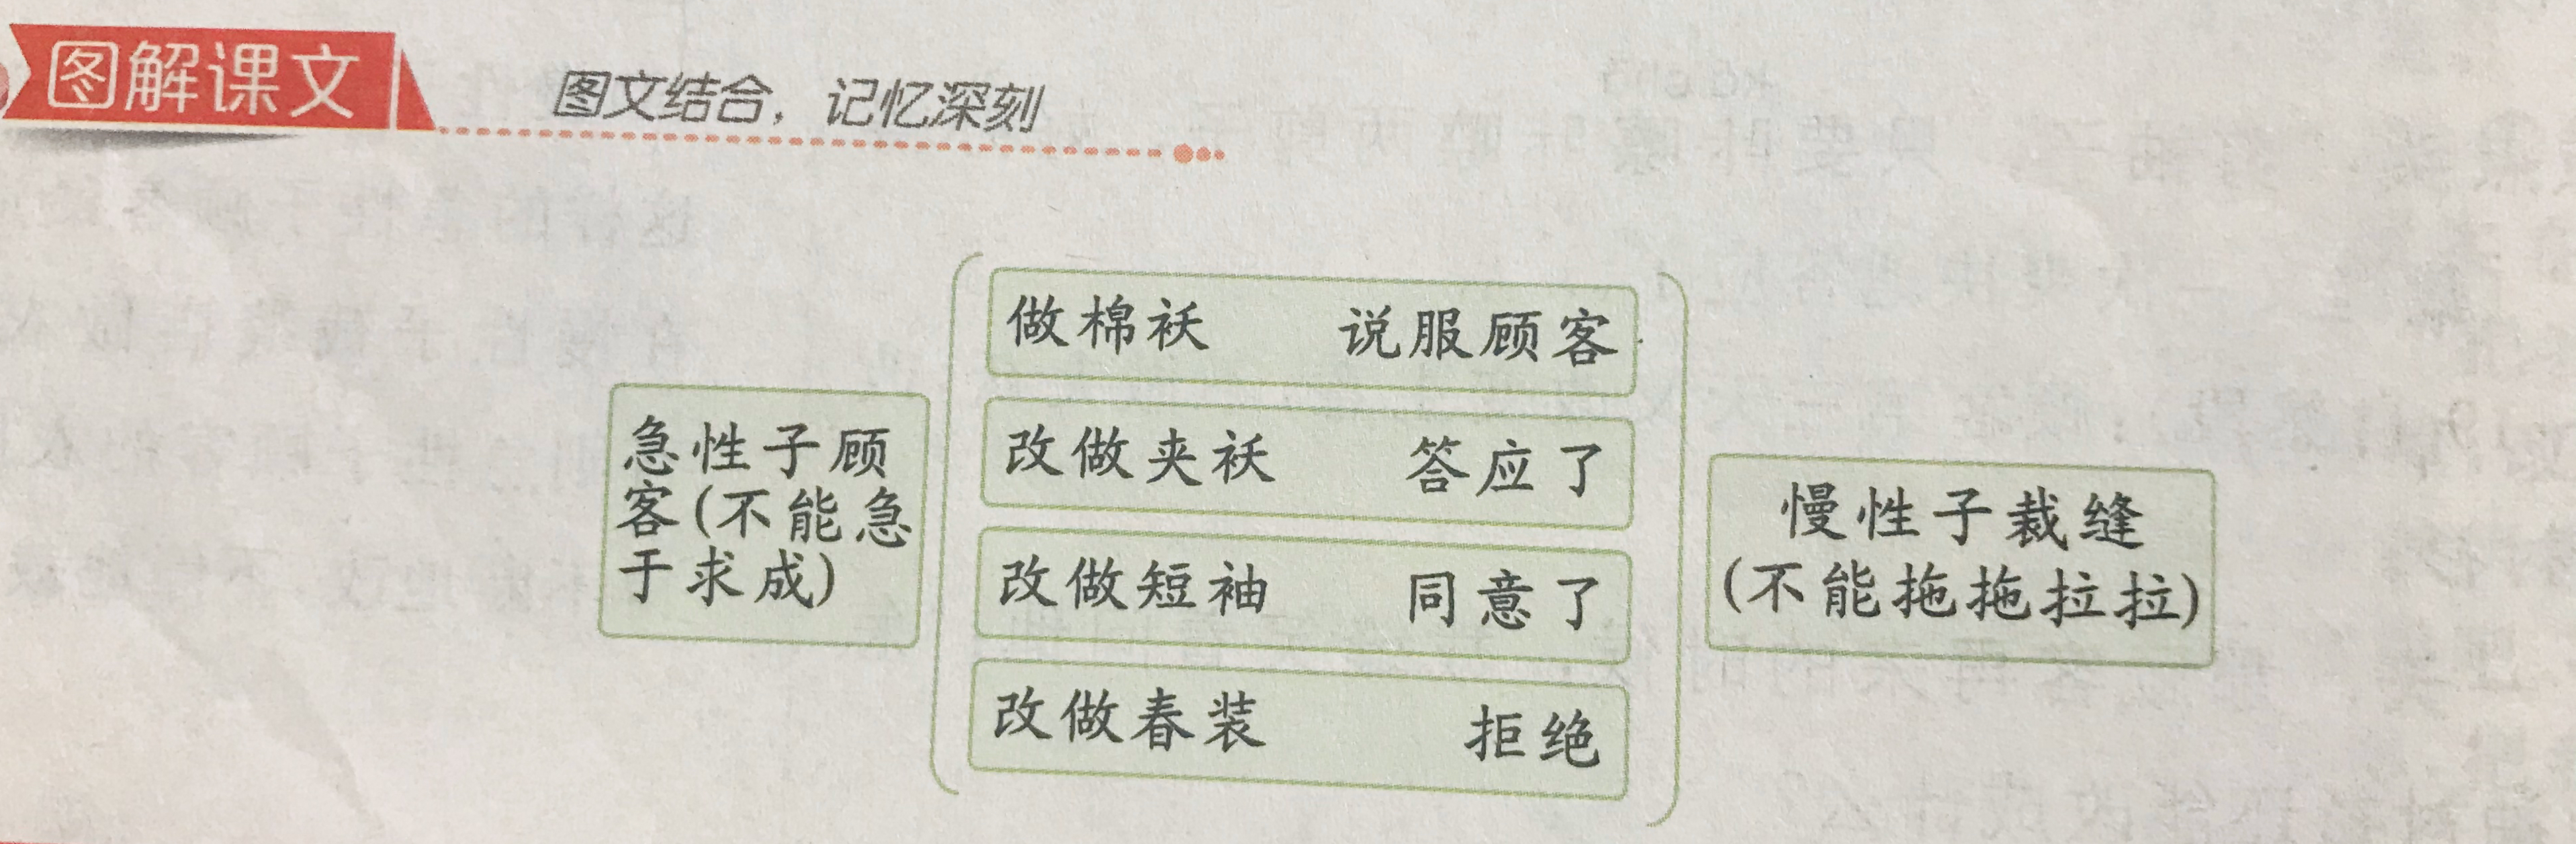 图解课文
图文结合，记忆深刻
急性子顾
客(不能急
于求成)
做棉袄 说服顾客
改做夹袄 答应了
改做短袖 同意了
改做春装 拒绝
慢性子裁缝
(不能拖拖拉拉)